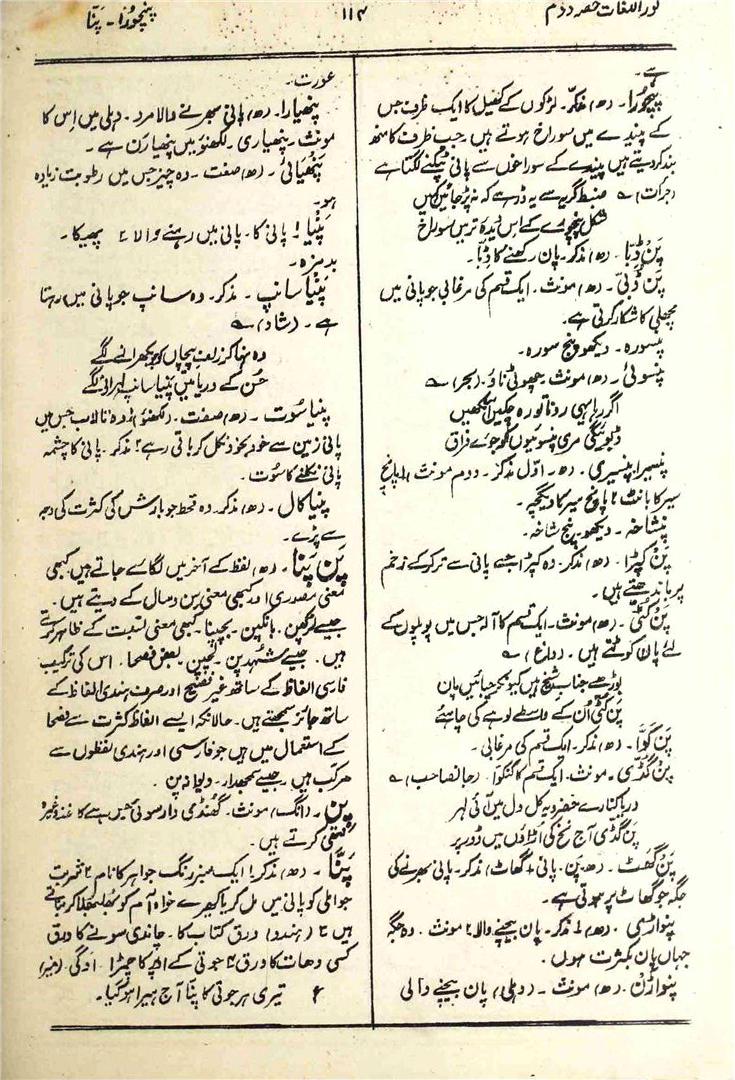 نور اللغات حصہ دوم
۱۱۴
پنچوڑا - پنّا
ہے۔
پنچوڑا۔ (ھ) مذکر۔ لڑکوں کے کھیل کا ایک ظرف جس
کے پیندے میں سوراخ ہوتے ہیں۔ جب ظرف کا منھ
بند کر دیتے ہیں پیندے کے سوراخوں سے پانی ٹپکنے لگتا ہے
(جرأت) ؎ ضبط گریہ سے یہ ڈر ہے کہ نہ پڑ جائیں کہیں
شکل پنچوڑے کے اس دیدۂ تر میں سوراخ
پَن ڈبّا۔ (ھ) مذکر۔ پان رکھنے کا ڈبّا۔
پَن ڈُبّی۔ (ھ) مونث۔ ایک قسم کی مرغابی جو پانی میں
مچھلی کا شکار کرتی ہے۔
پنسورہ۔ دیکھو پنج سورہ۔
پنسوئی۔ (ھ) مونث۔ چھوٹی ناؤ۔ (بحر) ؎
اگر راہی رونا تو رہ چکیں آنکھیں
ڈبوئیگی مری پنسوئیوں کو جوئے فراق
پنسیرا۔ پنسیری۔ (ھ) اوّل مذکر۔ دوم مونث ۱۔ پانچ
سیر کا بانٹ ۲ پانچ سیر کا دیگچہ۔
پنشاخہ۔ دیکھو پنج شاخہ۔
پَن کپڑا۔ (ھ) مذکر۔ وہ کپڑا جسے پانی سے تر کر کے زخم
پر باندھتے ہیں۔
پَن کُٹی۔ (ھ) مونث۔ ایک قسم کا آلہ جس میں پوپلوں کے
لئے پان کوٹتے ہیں۔ (داغ) ؎
بوڑھے جناب شیخ ہیں کیونکر چبائیں پان
پن کٹی اُن کے واسطے لوہے کی چاہئے
پَن کوّا۔ (ھ) مذکر۔ ایک قسم کی مرغابی۔
پن گڈّی۔ مونث۔ ایک قسم کا کنکوا۔ (جانصاحب) ؎
دریا کنارے خضر و یہ کل دل میں آئی لہر
پن گڈی آج نخ کی اڑاؤں میں ڈور پر
پَن گھٹ۔ (ھ۔ پن۔ پانی + گھاٹ) مذکر۔ پانی بھرنے کی
جگہ جو گھاٹ پر ہوتی ہے۔
پنواڑی۔ (ھ) ۱ مذکر۔ پان بیچنے والا ۲ مونث۔ وہ جگہ
جہاں پان بکثرت ہوں۔
پنواڑن۔ (ھ) مونث۔ (دہلی) پان بیچنے والی
عورت۔
پنھیارا۔ (ھ) پانی بھرنے والا مرد۔ دہلی میں اِس کا
مونث۔ پنھیاری۔ لکھنؤ میں پنھیارن ہے۔
پنھیائی۔ (ھ) صفت۔ وہ چیز جس میں رطوبت زیادہ
ہو۔
پَنیا ۱ پانی کا۔ پانی میں رہنے والا ۲ پھیکا۔
بدمزہ۔
پَنیا سانپ۔ مذکر۔ وہ سانپ جو پانی میں رہتا
ہے۔ (شاد) ؎
وہ نہا کر زلف پیچاں کو جو بکھرانے لگے
حُسن کے دریا میں پنیا سانپ لہرانے لگے
پنیا سُوت۔ (ھ) صفت۔ (لکھنؤ) ۱ وہ تالاب جس میں
پانی زمین سے خود بخود نکل کر باقی رہے ۲ مذکر۔ پانی کا چشمہ
پانی نکلنے کا سُوت۔
پنیا کال۔ (ھ) مذکر۔ وہ قحط جو بارش کی کثرت کی وجہ
سے پڑے۔
پَن پَنا۔ (ھ) لفظ کے آخر میں لگائے جاتے ہیں۔ کبھی
معنی مصدری اور کبھی معنی سِن و سال کے دیتے ہیں۔
جیسے لڑکپن۔ بانکپن۔ بچپنا۔ کبھی معنی نسبت کے ظاہر کرتے
ہیں۔ جیسے شُہدپن۔ لچپن۔ بعض فصحا۔ اس کی ترکیب
فارسی الفاظ کے ساتھ غیر فصیح اور صرف ہندی الفاظ کے
ساتھ جائز سمجھتے ہیں۔ حالانکہ ایسے الفاظ کثرت سے فصحا
کے استعمال میں ہیں جو فارسی اور ہندی لفظوں سے
مرکب ہیں۔ جیسے سمجھدار۔ دیوانہ پن۔
پِن۔ (انگ) مونث۔ گھُنڈی دار سوئی جس سے کاغذ وغیرہ
نتھی کرتے ہیں۔
پَنّا۔ (ھ) مذکر ۱ ایک سبز رنگ جواہر کا نام ۲ شربت
جو املی کو پانی میں مل کر یا کھیرے خواہ آم کو بھلبھلا کر بناتے
ہیں ۳ (ہندو) ورق کتاب کا۔ چاندی سونے کا ورق
کسی دھات کا ورق ۴ جوتی کے اوپر کا چمڑا۔ اوگی۔ (منیر)
؏ تیری ہر جوتی کا پنّا آج ہیرا ہو گیا۔